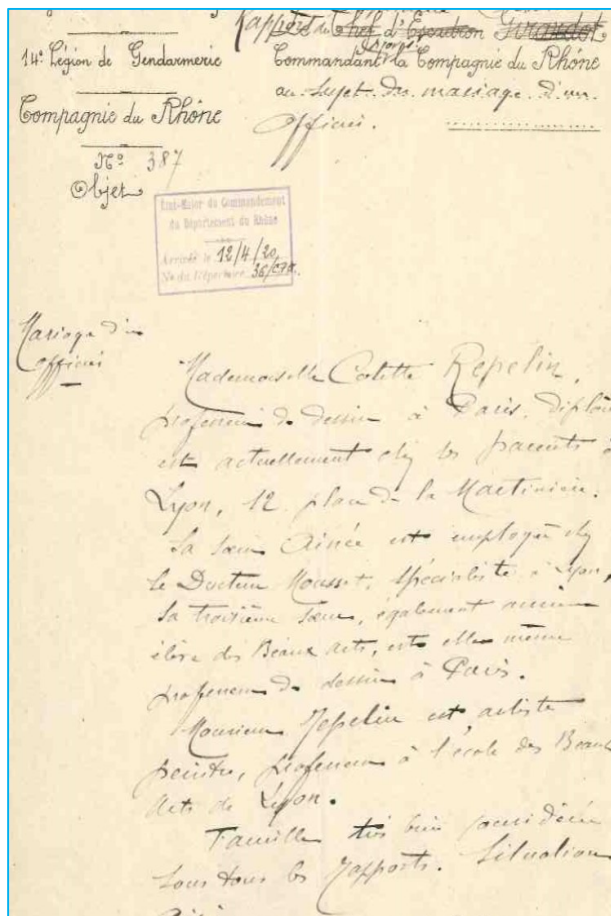 Rapport du Chef d'Escadron Girardot
14e Légion de Gendarmerie
Commandant la Compagnie du Rhône
au sujet du mariage d'un
Officier.
Compagnie du Rhône
No 387
Objet
Etat-Major du Commandement
du Département du Rhône
Arrivée le 12/4/20
No du Répertoire 36/
Mariage d'un
Officier
Mademoiselle Colette Repelin,
professeur de dessin à Paris, diplôm
est actuellement chez ses parents à
Lyon, 12 place de la Martinière.
Sa sœur Ainée est employée chez
le Docteur Mousset, spécialiste à Lyon,
sa troisième sœur, également ancienne
élève des Beaux arts, est elle même
professeur de dessin à Paris.
Monsieur Repelin est artiste
peintre, professeur à l'école des Beaux
Arts de Lyon.
Famille très bien considérée
sous tous les rapports. Situation